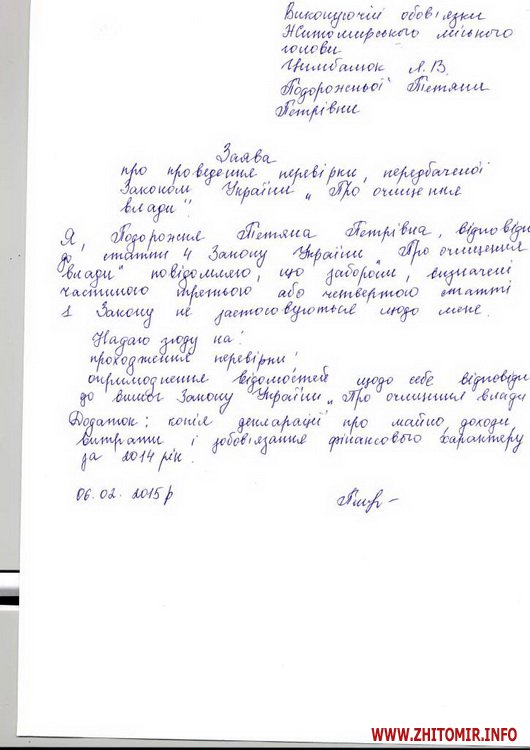 Виконуючій обов'язки
Житомирського міського
голови
Цимбалюк Л.В.
Подорожньої Тетяни
Петрівни
Заява
про проведення перевірки, передбаченої
Законом України „Про очищення
влади".
Я, Подорожня Тетяна Петрівна, відповідн
до статті 4 Закону України „Про очищення
влади" повідомляю, що заборони, визначені
частиною третьою або четвертою статті
1 Закону не застосовуються щодо мене.
Надаю згоду на:
проходження перевірки;
оприлюднення відомостей щодо себе відповідн
до вимог Закону України „Про очищення влади
Додаток: копія декларації про майно, доходи,
витрати і зобов'язання фінансового характеру
за 2014 рік.
06.02.2015р
WWW.ZHITOMIR.INFO